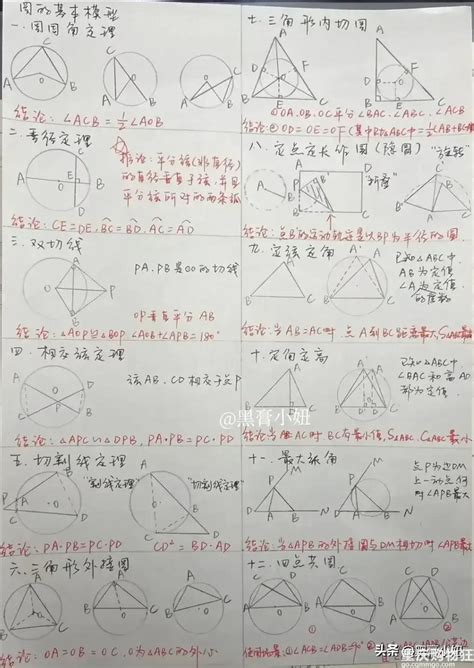 圆的基本模型
一.圆周角定理
结论: ∠ACB = 1/2∠AOB
二.垂径定理
推论:平分弦(非直径)
的直径垂直于弦,并且
平分弦所对的两条弧
结论: CE=DE. BC=BD. AC=AD
三.双切线
PA.PB是⊙O的切线
OP垂直平分AB
结论: △AOP≌△BOP ∠AOB+∠APB=180°
四.相交弦定理
弦AB.CD相交于点P
结论: △APC∽△DPB, PA·PB=PC·PD
五.切割线定理
"割线定理"
"切割线定理"
结论: PA·PB=PC·PD
CD²=BD·AD
六.三角形外接圆
结论: OA=OB=OC, O为△ABC的外心
七.三角形内切圆
结论①OA.OB.OC平分∠BAC.∠ABC.∠ACB
②OD=OE=OF
八.定点定长作圆(隐圆)
"旋转"
"折叠"
结论:点B的运动轨迹是以BP为半径的圆
九.定弦定角
已知△ABC中
AB为定值
∠A为定值
结论:当AB=AC时.点A到BC距离最大,S△ABC最大
十.定角定高
已知△ABC中
∠BAC和高AD
都为定值
结论:当AB=AC时 BC有最小值,S△ABC.C△ABC最小
@黑膏小妞
十一.最大张角
点P为边DM
上一动点何
时∠APB最大
结论:当△APB的外接圆与DM相切时∠APB最大
十二.四点共圆
①
②
头条
重庆购物狂
go.cqmmgo.com